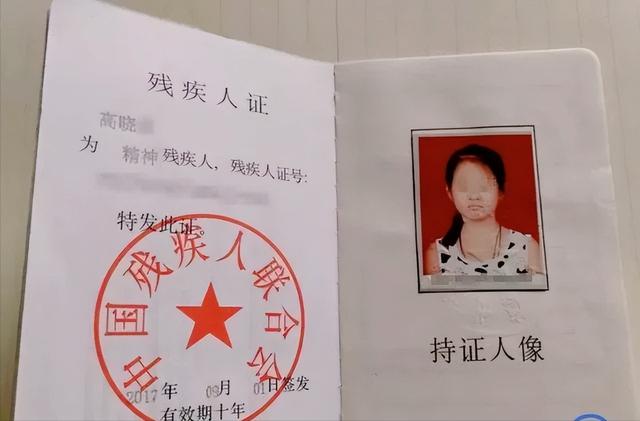 残疾人证
高晓
为 精神残疾人，残疾人证号:
特发此证。
中国残疾人联合会
2017年 09月 01日签发
有效期十年
持证人像